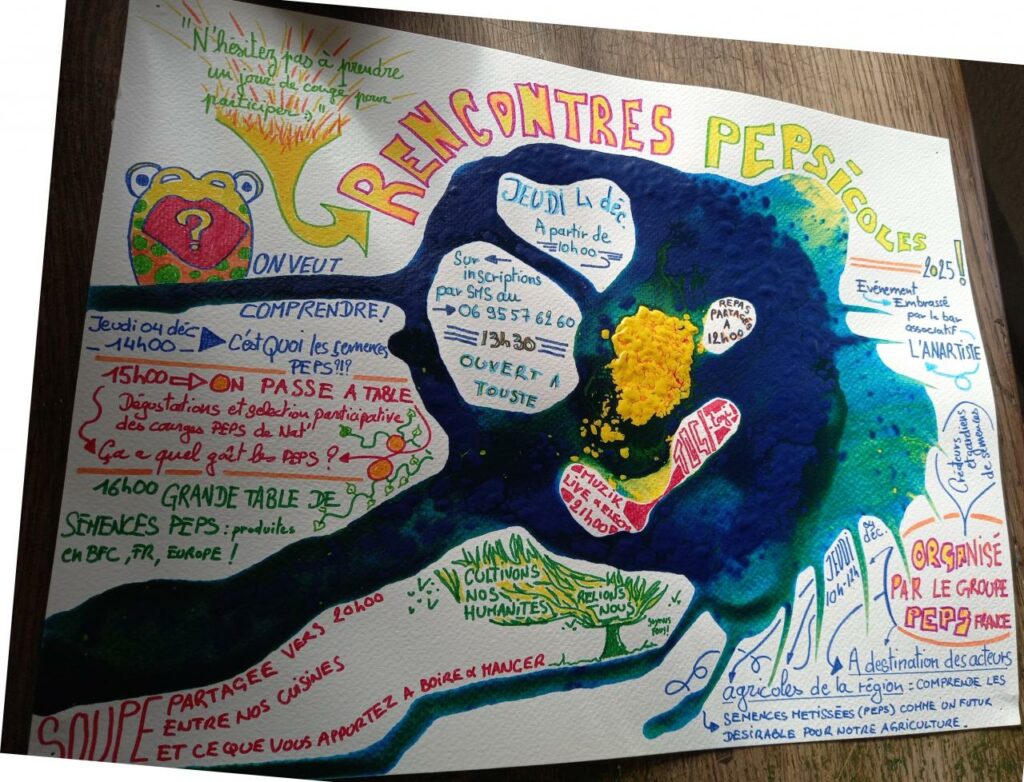 "N'hésitez pas à prendre
un jour de congé pour
participer,"
RENCONTRES PEPSICOLES
2025!
?
ON VEUT
COMPRENDRE!
JEUDI 4 déc.
A partir de
10h00
Sur
inscriptions
par SMS au
06 95 57 62 60
13h30
OUVERT A
TOUSTE
REPAS
PARTAGÉS
A
12h00
Evénement
Embrassé
par le bar
associatif
L'ANARTISTE
Jeudi 04 déc
14H00
C'est Quoi les semences
PEPS?!?
15H00 ON PASSE A TABLE
Dégustations et selection participative
des courges PEPS de Nat'
Ça a quel goût les PEPS?
16H00 GRANDE TABLE DE
SEMENCES PEPS: produites
en BFC, FR, EUROPE!
MUZIK
LIVE
21H00
CULTIVONS
NOS
HUMANITÉS
RELIONS
NOUS
SOUPE PARTAGÉE VERS 20H00
ENTRE NOS CUISINES
ET CE QUE VOUS APPORTEZ A BOIRE & MANGER
Créateurs
et gardiens
de semences
ORGANISÉ
PAR LE GROUPE
PEPS FRANCE
JEUDI 04 déc.
10H-12H
A destination des acteurs
agricoles de la région: COMPRENDE LES
SEMENCES METISSÉES (PEPS) COMME UN FUTUR
DESIRABLE POUR NOTRE AGRICULTURE.